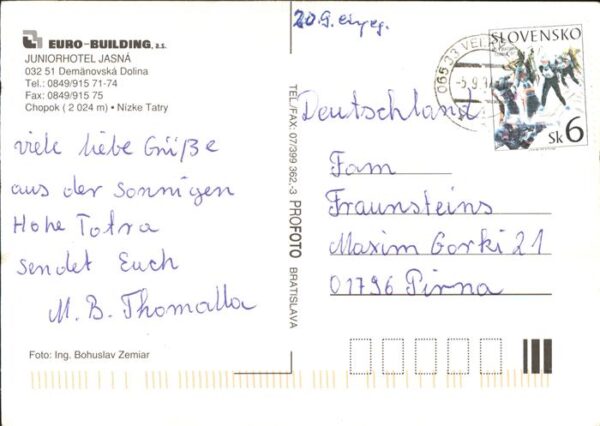 EURO-BUILDING, a.s.
JUNIORHOTEL JASNÁ
032 51 Demänovská Dolina
Tel.: 0849/915 71-74
Fax: 0849/915 75
Chopok ( 2 024 m) • Nízke Tatry
viele liebe Grüße
aus der Sonnigen
Hohe Totra
sendet Euch
M. B. Thomalla
Foto: Ing. Bohuslav Zemiar
TEL/FAX: 07/399 362,-3 PROFOTO BRATISLAVA
20.9.
SLOVENSKO
Sk 6
065 33 VE
-5.9.
Deutschland
Fam
Fraunsteins
Maxim Gorki 21
01796 Pirna